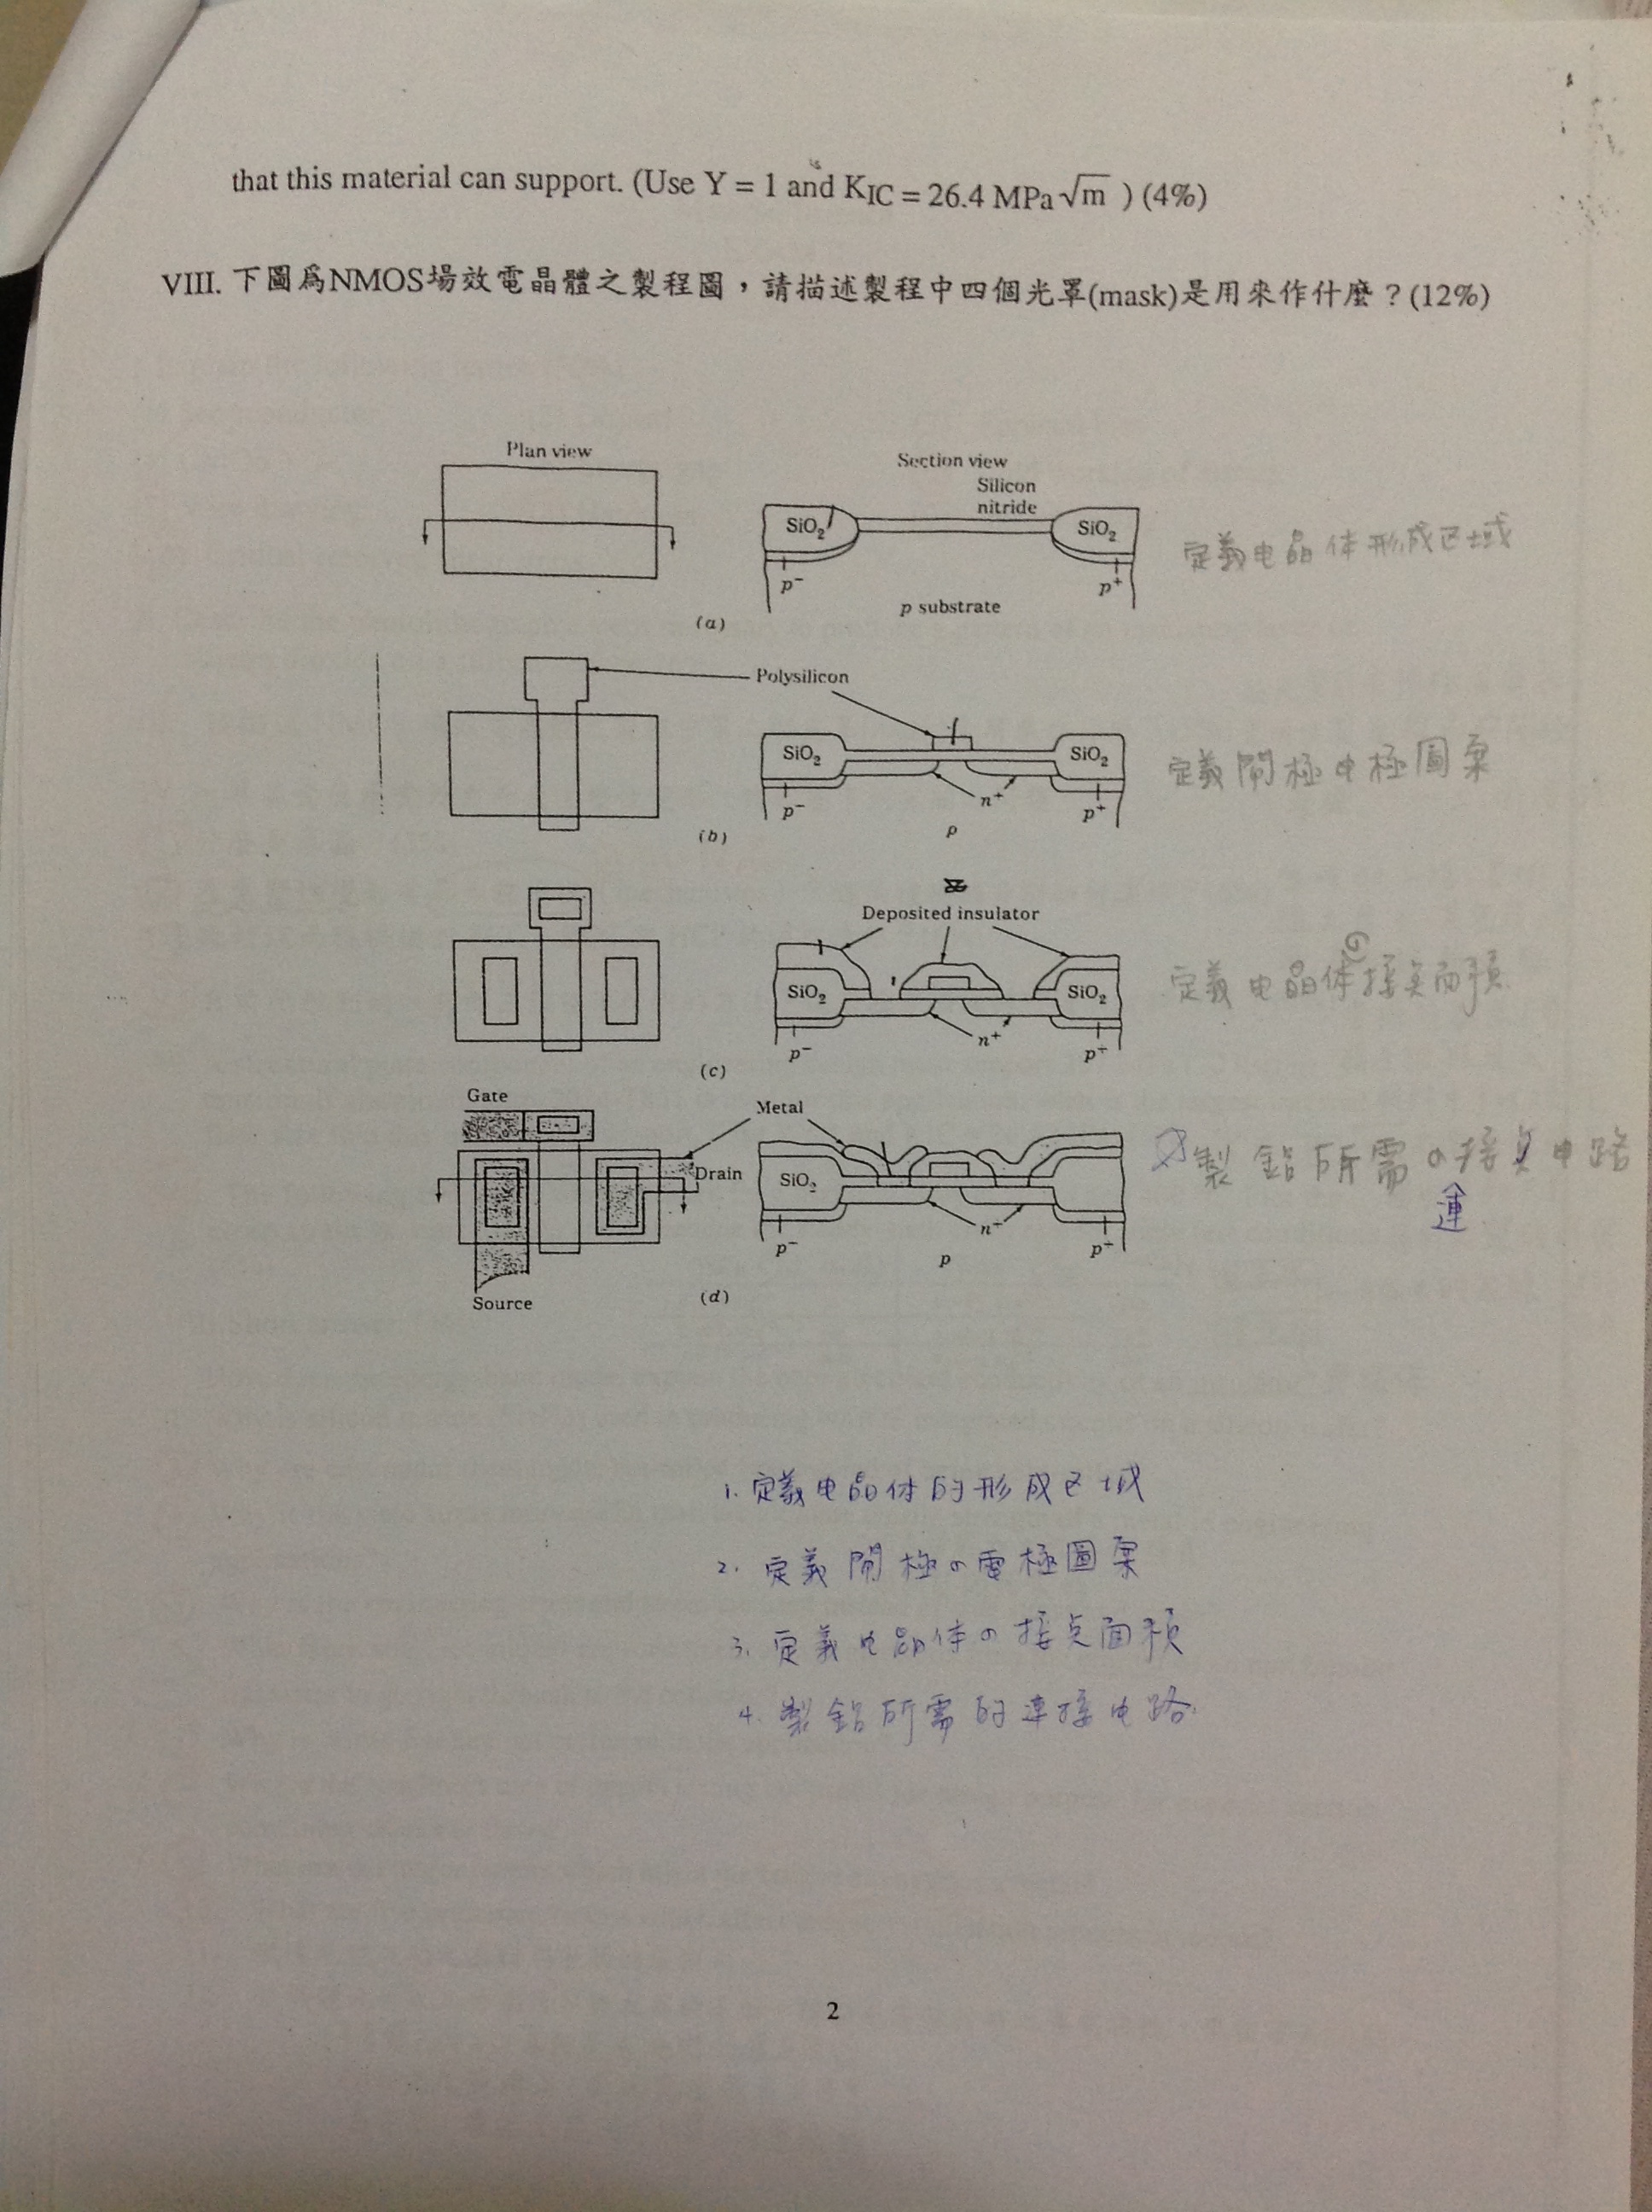 that this material can support. (Use Y = 1 and KIC = 26.4 MPa√m ) (4%)
VIII. 下圖爲NMOS場效電晶體之製程圖，請描述製程中四個光罩(mask)是用來作什麼？(12%)
Plan view
Section view
Silicon
nitride
SiO2
SiO2
定義电晶体形成区域
p⁻
p⁺
p substrate
(a)
Polysilicon
SiO2
SiO2
定義閘極电極圖案
n⁺
p⁻
p⁺
p
(b)
Deposited insulator
SiO2
SiO2
定義电晶体の接点面積
n⁺
p⁻
p⁺
(c)
Gate
Metal
Drain
SiO2
製鋁所需の接点电路
連
n⁺
p⁻
p⁺
p
Source
(d)
1. 定義电晶体的形成区域
2. 定義閘極の電極圖案
3. 定義电晶体の接点面積
4. 製鋁所需的連接电路
2